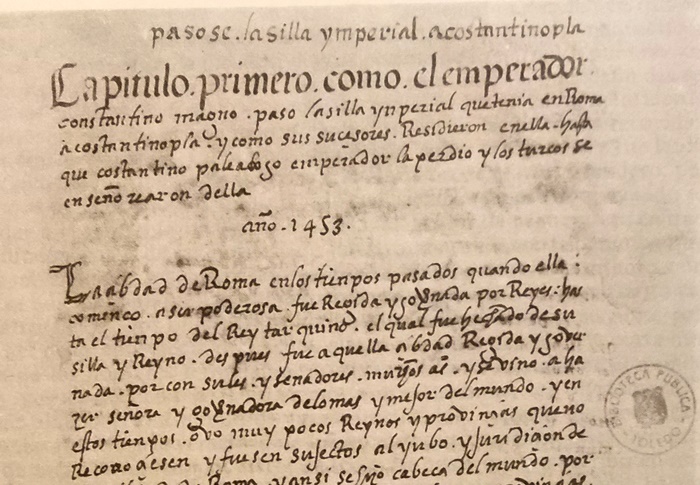 pasose. la silla ymperial. acostantinopla
Capitulo. primero. como. el emperador.
constantino magno. paso lasilla ynperial quetenia enRoma
acostantinopla. y como sus sucesores. Residieron enella. hasta
que costantino paleologo emperador la perdio y los turcos se
enseñorearon della
año. 1453.
La çibdad de Roma enlos tienpos pasados quando ella
començo. a ser poderosa. fue Regida y governada por Reyes. has
ta el tienpo del Rey tarquino. el qual fue hechado de su
silla y Reyno. despues fue aquella çibdad Regida y gover
nada. por con sules. y senadores. muchos años. y vino. a ha
zer señora y governadora delomas y mejor del mundo. y en
estos tienpos. ovo muy pocos Reynos y provinçias queno
Reconoçiesen y fuesen sujectos al yubo. y juridiçion de
Roma. y ansi se hizo cabeça del mundo. por
BIBLIOTECA PUBLICA
TOLEDO